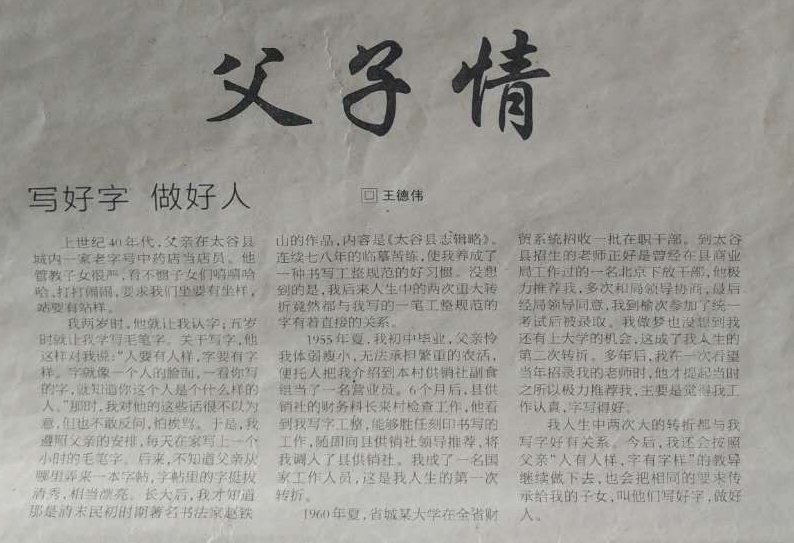 父子情
写好字 做好人
回 王德伟
上世纪40年代，父亲在太谷县
城内一家老字号中药店当店员。他
管教子女很严，看不惯子女们嘻嘻哈
哈，打打闹闹，要求我们坐要有坐样，
站要有站样。
我两岁时，他就让我认字；五岁
时就让我学写毛笔字。关于写字，他
这样对我说：“人要有人样，字要有字
样。字就像一个人的脸面，一看你写
的字，就知道你这个人是个什么样的
人。”那时，我对他的这些话很不以为
意，但也不敢反问，怕挨骂。于是，我
遵照父亲的安排，每天在家写上一个
小时的毛笔字。后来，不知道父亲从
哪里弄来一本字帖，字帖里的字挺拔
清秀，相当漂亮。长大后，我才知道
那是清末民初时期著名书法家赵铁
山的作品，内容是《太谷县志辑略》。
连续七八年的临摹苦练，使我养成了
一种书写工整规范的好习惯。没想
到的是，我后来人生中的两次重大转
折竟然都与我写的一笔工整规范的
字有着直接的关系。
1955年夏，我初中毕业，父亲怜
我体弱瘦小，无法承担繁重的农活，
便托人把我介绍到本村供销社副食
组当了一名营业员。6个月后，县供
销社的财务科长来村检查工作，他看
到我写字工整，能够胜任刻印书写的
工作，随即向县供销社领导推荐，将
我调入了县供销社。我成了一名国
家工作人员，这是我人生的第一次
转折。
1960年夏，省城某大学在全省财
贸系统招收一批在职干部。到太谷
县招生的老师正好是曾经在县商业
局工作过的一名北京下放干部，他极
力推荐我，多次和局领导协商，最后
经局领导同意，我到榆次参加了统一
考试后被录取。我做梦也没想到我
还有上大学的机会，这成了我人生的
第二次转折。多年后，我在一次看望
当年招录我的老师时，他才提起当时
之所以极力推荐我，主要是觉得我工
作认真，字写得好。
我人生中两次大的转折都与我
写字好有关系。今后，我还会按照
父亲“人有人样，字有字样”的教导
继续做下去，也会把相同的要求传
承给我的子女，叫他们写好字，做好
人。